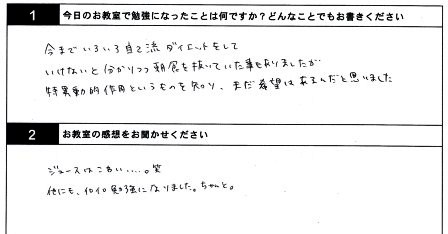 1 今日のお教室で勉強になったことは何ですか？どんなことでもお書きください
今まで いろいろ自己流ダイエットをして
いけないと分かりつつ朝食を抜いていた事もありましたが
特異動的作用というものを知り、まだ希望はあるんだと思いました
2 お教室の感想をお聞かせください
ジュースはこわい....。笑
他にも、イロイロ勉強になりました。ちゃんと。